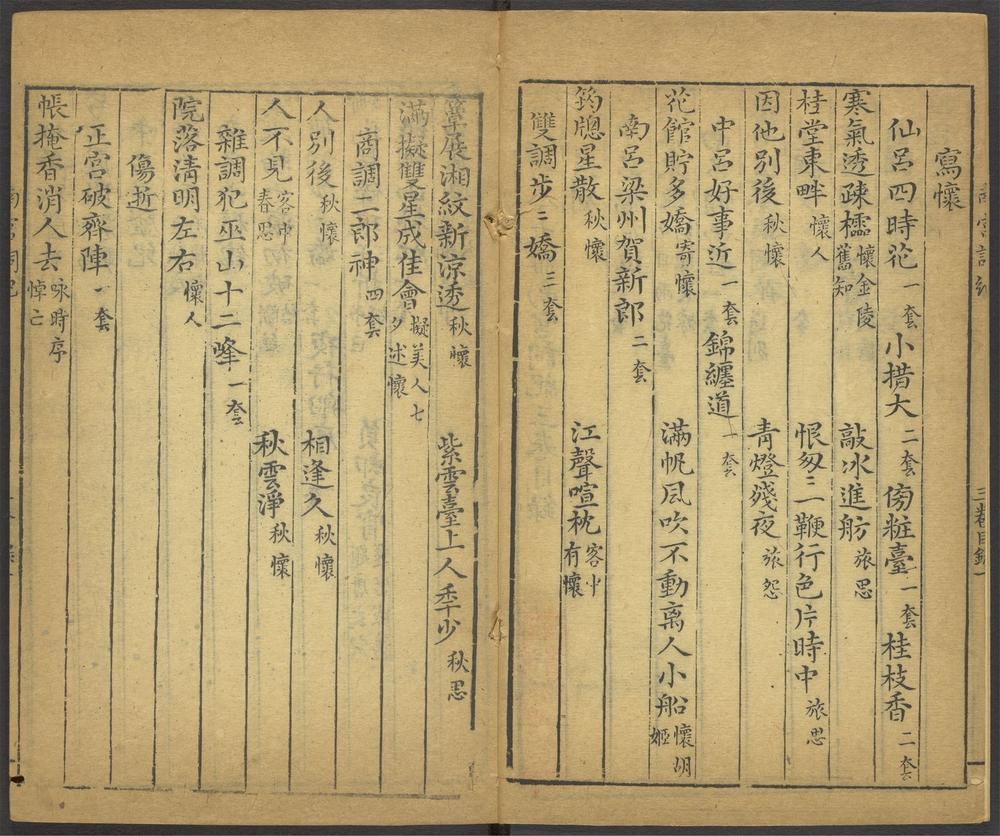 寫懷
仙呂四時花一套小措大二套傍粧臺一套桂枝香二套
寒氣透疎櫺懷金陵舊知 敲冰進舫旅思
桂堂東畔懷人 恨匆〻鞭行色片時中旅思
因他別後秋懷 青燈殘夜旅怨
中呂好事近一套錦纏道一套
花館貯多嬌寄懷 滿帆風吹不動离人小船懷胡姬
南呂梁州賀新郎二套
筠牕星散秋懷 江聲喧枕客中有懷
雙調步〻嬌三套
簟展湘紋新涼透秋懷 紫雲臺上人秊少秋思
滿擬雙星成佳會擬美人七夕述懷
商調二郎神四套
人別後秋懷 相逢久秋懷
人不見客中春思 秋雲淨秋懷
雜調犯巫山十二峰一套
院落清明左右懷人
傷逝
正宮破齊陣一套
帳掩香消人去咏時序悼亡
三卷目錄一